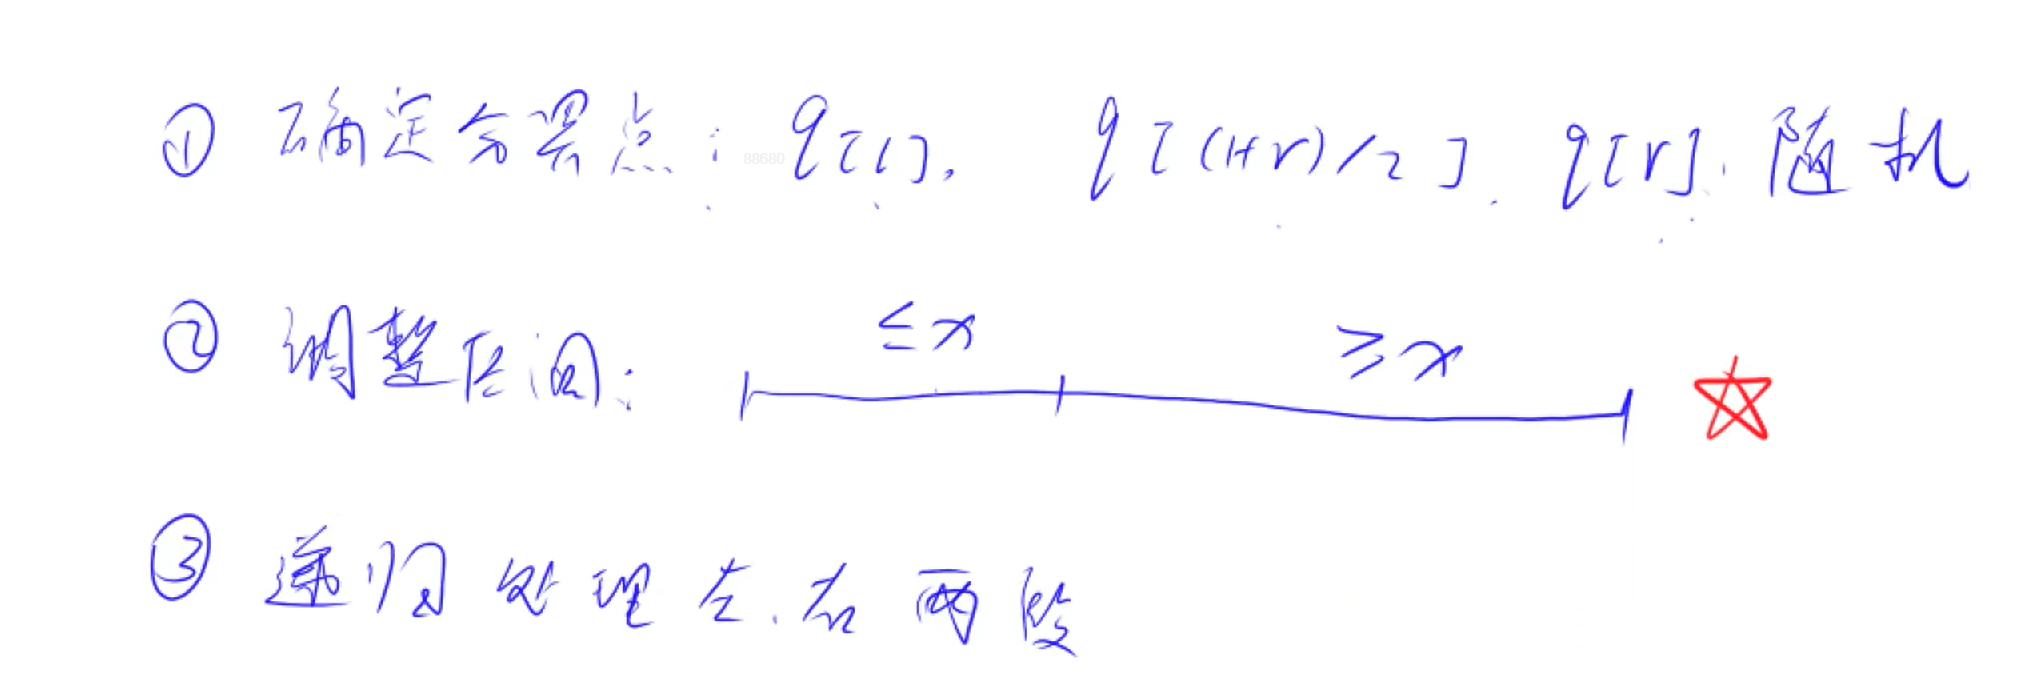 ① 确定分界点: q[l], q[(l+r)/2], q[r], 随机
88680
② 调整区间: ≤x ≥x
③ 递归处理左、右两段